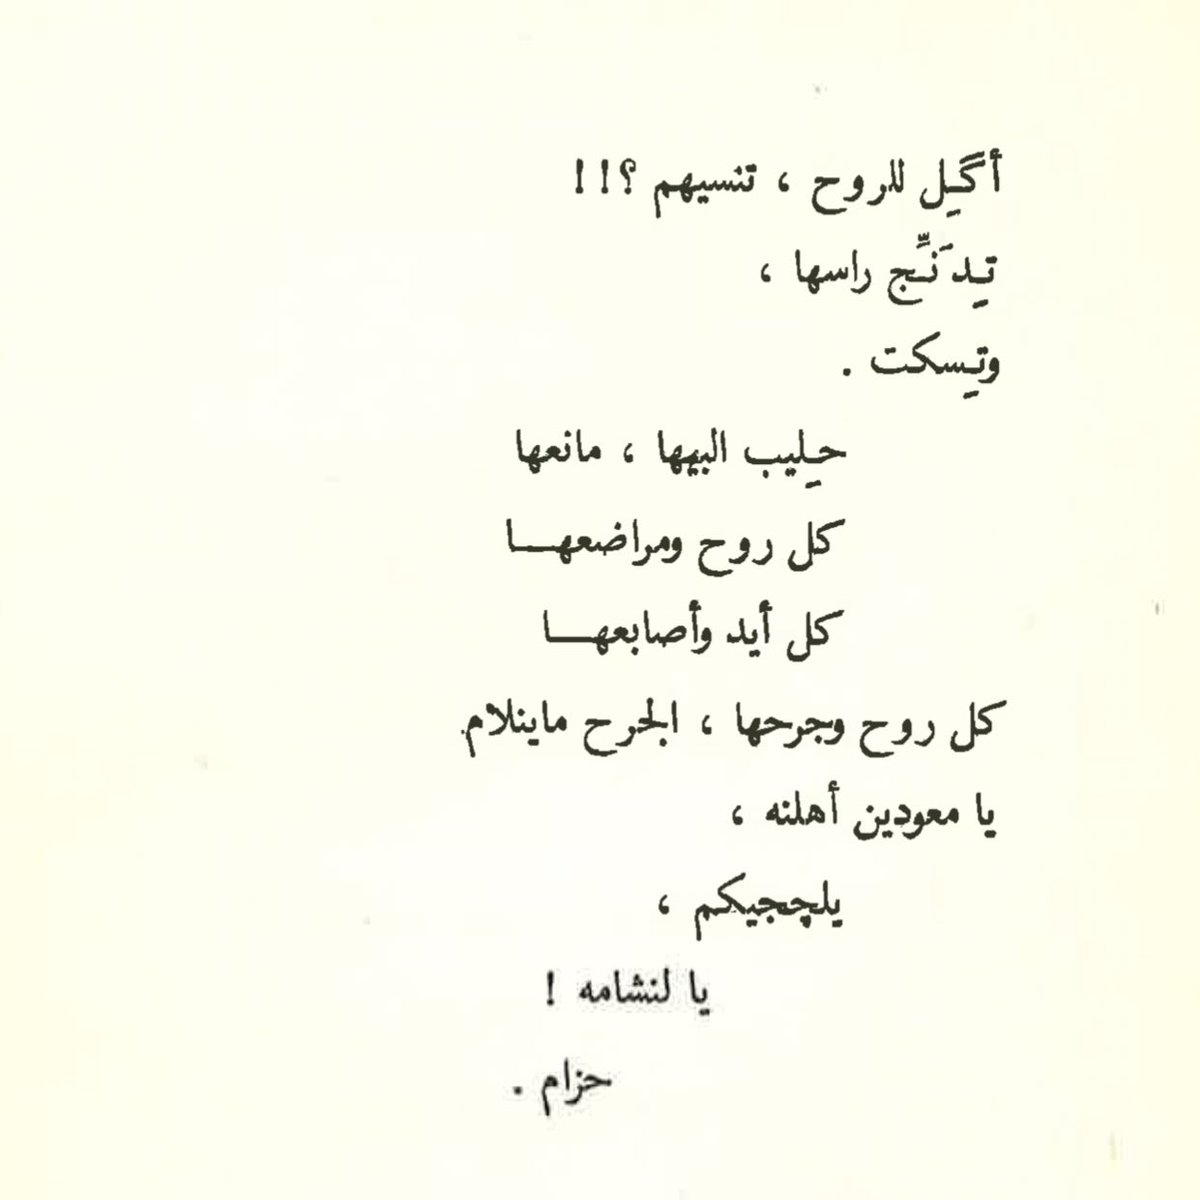 أگـِل للروح ، تنسيهم ؟!!
تـِدَنـِّج راسها ،
وتـِسكت .
حـِليب البيها ، مانعها
كل روح ومراضعهـــا
كل أيد وأصابعهـــا
كل روح وجرحها ، الجرح ماينلام
يا معودين أهلنه ،
يلچجيكم ،
يا لنشامه !
حزام .